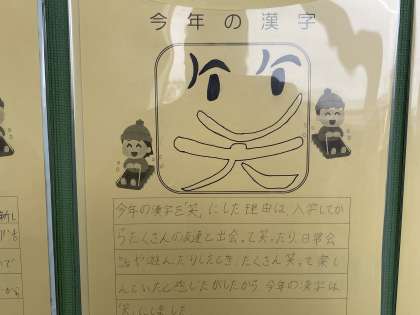 今年の漢字
笑
今年の漢字を「笑」にした理由は、入学してか
らたくさんの友達と出会って笑ったり、日常会
話や遊んだりしたとき、たくさん笑って楽し
んでいたと感じたがしたから今年の漢字は
「笑」にしました
新し
で
から